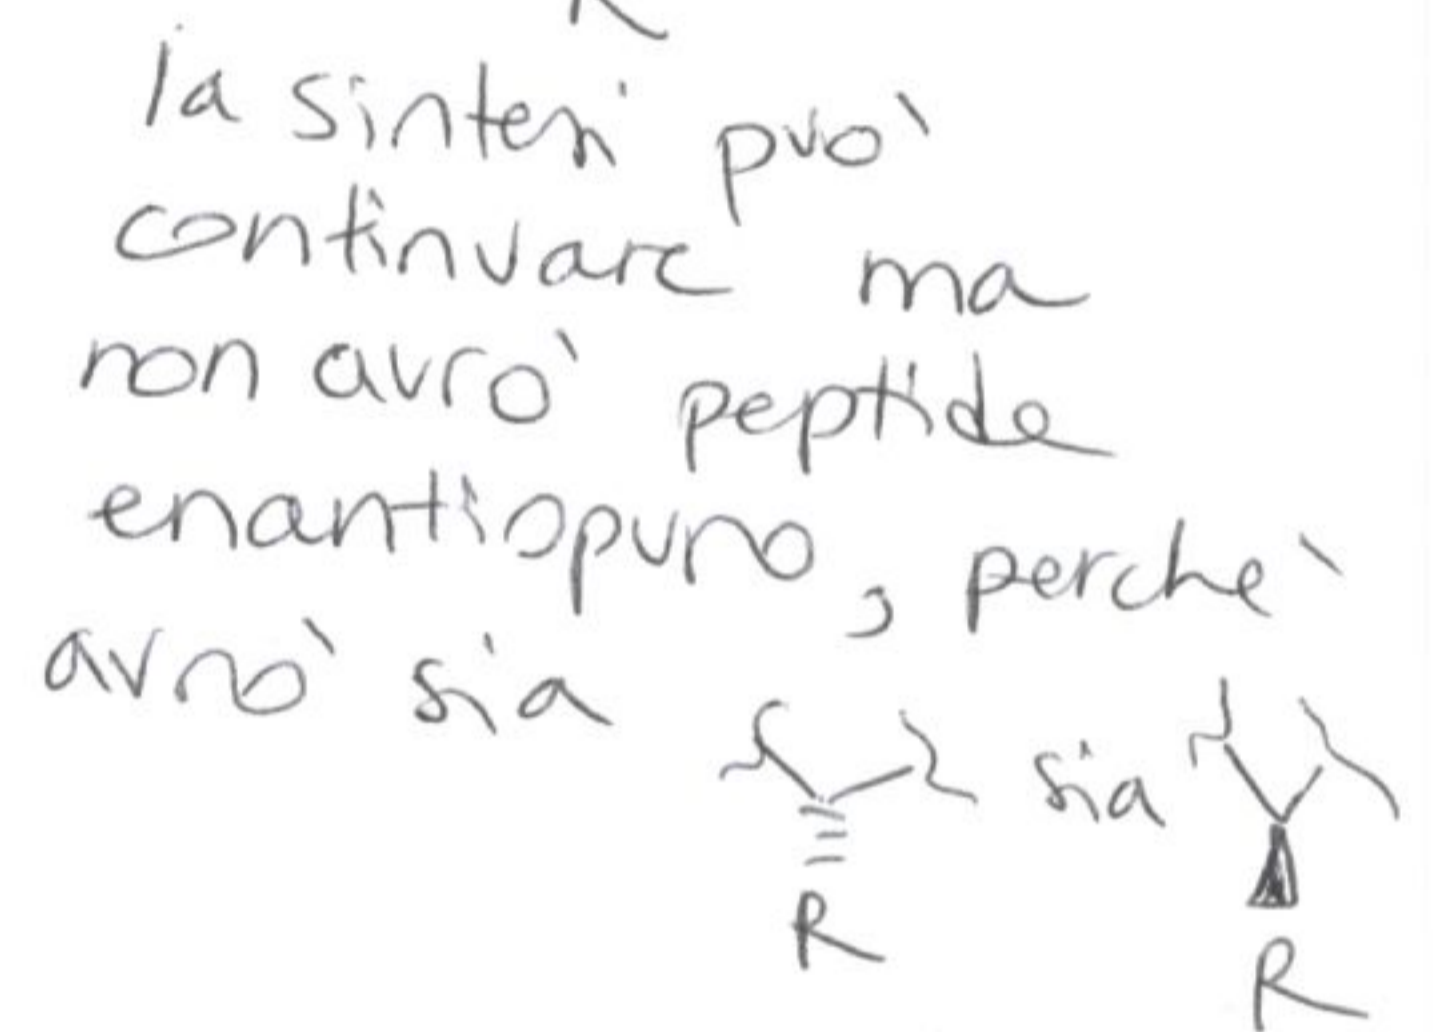 la sintesi può
continuare ma
non avrò peptide
enantiopuro, perchè
avrò sia sia
R
R